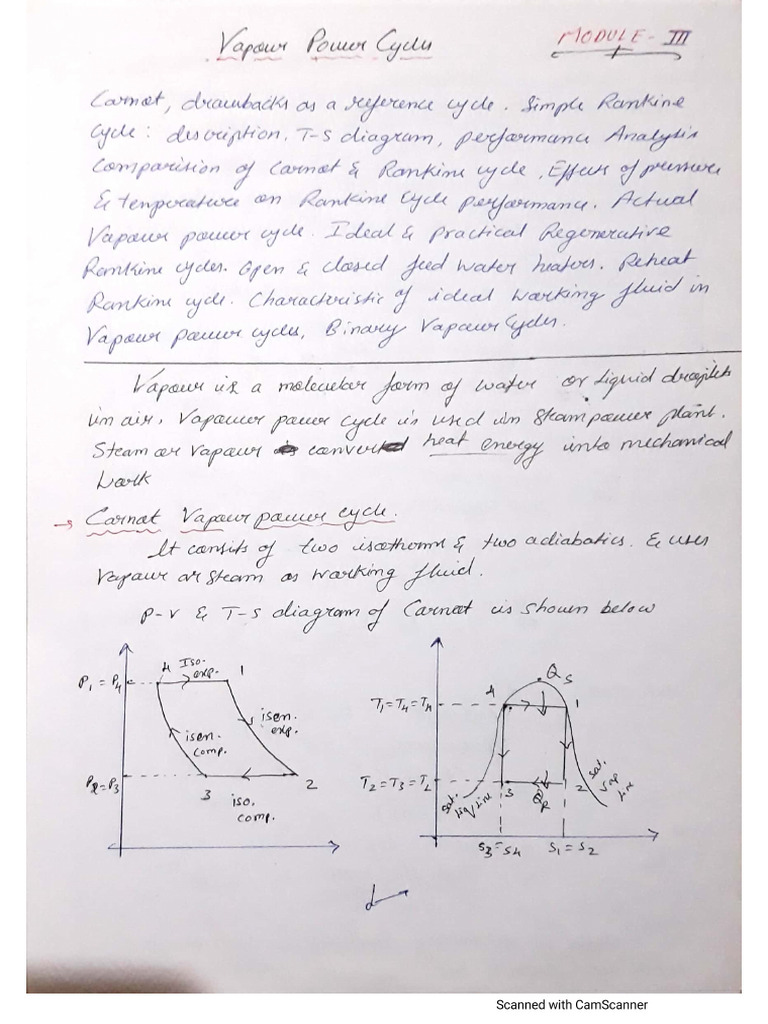 Vapour Power Cycles
MODULE - III
Carnot, drawbacks as a reference cycle. Simple Rankine
Cycle: description, T-S diagram, performance Analysis
Comparision of Carnot & Rankine cycle, Effect of pressure
& temperature on Rankine Cycle performance. Actual
Vapour power cycle. Ideal & practical Regenerative
Rankine cycles. Open & closed feed water heaters. Reheat
Rankine cycle. Characteristic of ideal working fluid in
Vapour power cycles, Binary Vapour Cycles.
Vapour is a molecular form of water or Liquid droplets
in air. Vapour power cycle is used in steam power plant.
Steam or Vapour converted heat energy into mechanical
Work
→ Carnot Vapour power cycle.
It consits of two isotherms & two adiabatics. & uses
Vapour or steam as working fluid.
P-V & T-S diagram of Carnot is shown below
P₁ = P₄
4
Iso. exp.
1
isen. comp.
isen. exp.
P₂ = P₃
3
iso. comp.
2
Qs
T₁ = T₄ = T_H
4
1
T₂ = T₃ = T_L
3
Q_R
2
sat. liq line
sat. vap line
S₃ = S₄
S₁ = S₂
Scanned with CamScanner